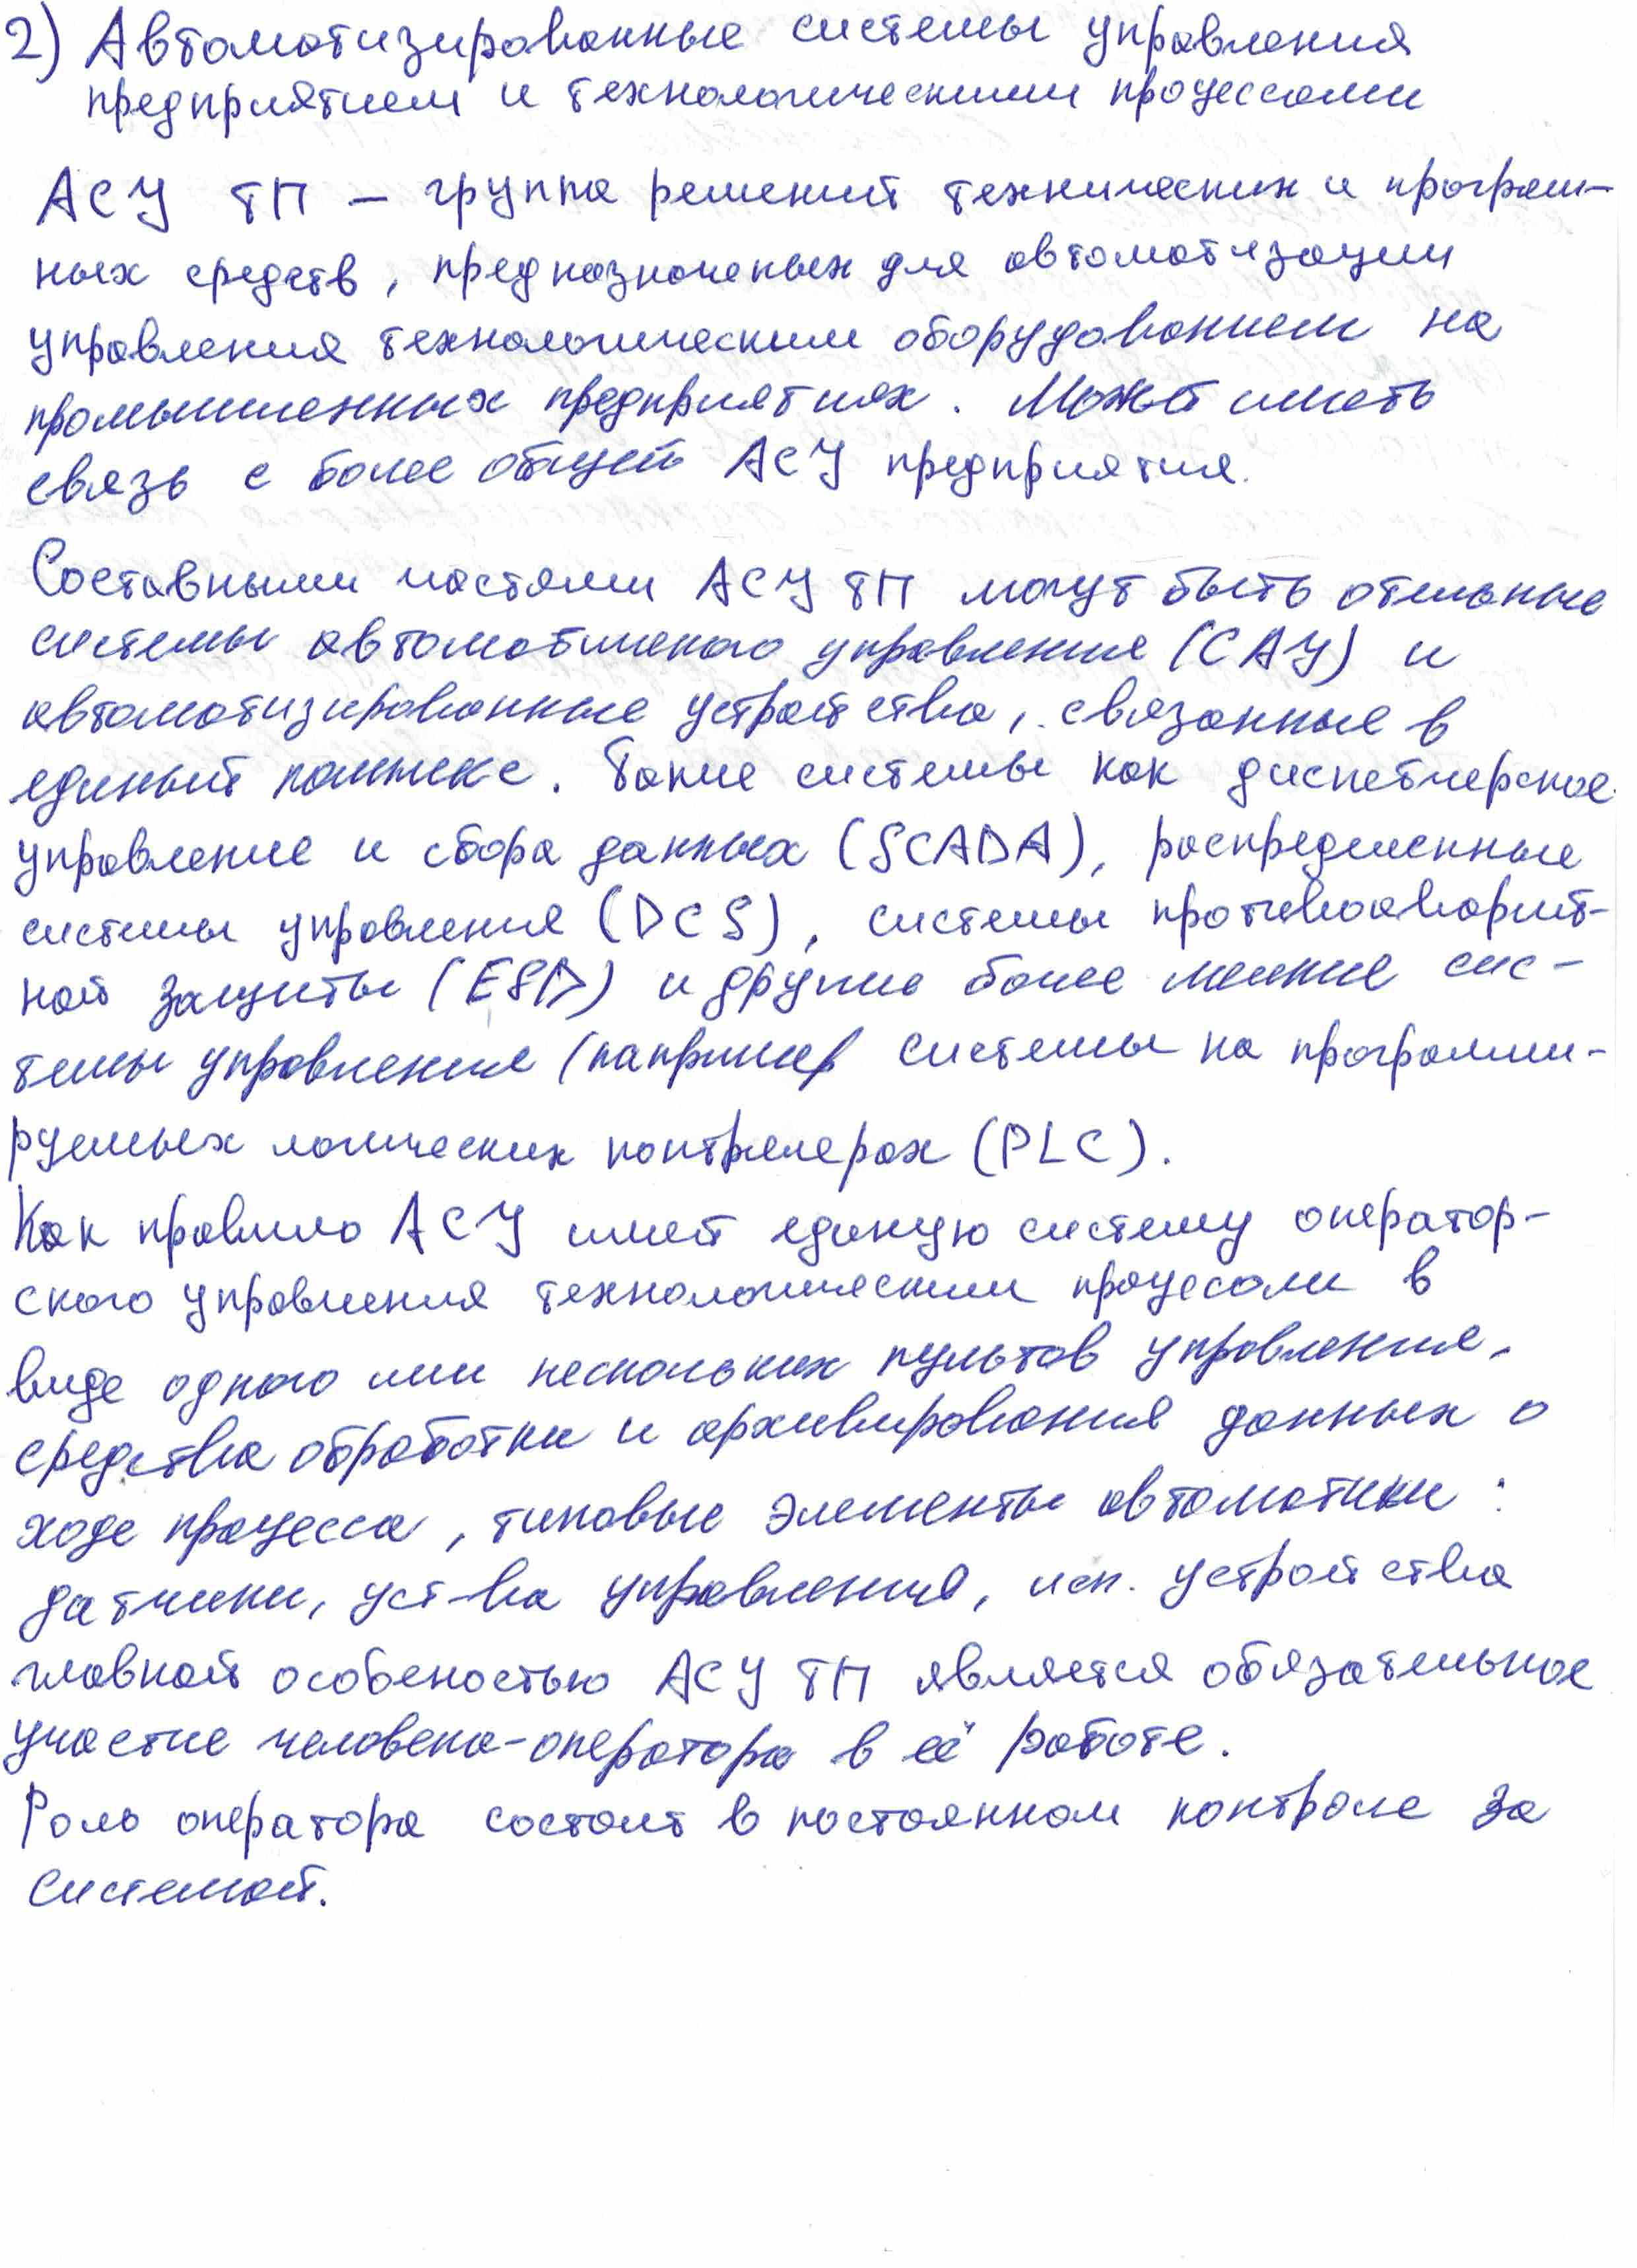 2) Автоматизированные системы управления
предприятием и технологическими процессами
АСУ ТП – группа решений технических и програм-
ных средств, предназначеных для автоматизации
управления технологическим оборудованием на
промышленных предприятиях. Может иметь
связь с более общей АСУ предприятия.
Составными частями АСУ ТП могут быть отельные
системы автоматичекого управления (САУ) и
автоматизированные устройства, связанные в
единый комплекс. Такие системы как диспетчерское
управление и сбора данных (SCADA), распределенные
системы управления (DCS), системы противоаварий-
ной защиты (ESD) и другие более мелкие сис-
темы управления (например системы на программи-
руемых логических контрлерах (PLC).
Как правило АСУ имеет единую систему оператор-
ского управления технологическим процесом в
виде одного или нескольких пультов управления,
средства обработки и архивирования данных о
ходе процесса, типовые элементы автоматики:
датчики, уст-ва управления, исп. устройства
главной особеностью АСУ ТП является обязательное
участие человека-оператора в её работе.
Роль оператора состоит в постоянном контроле за
системой.